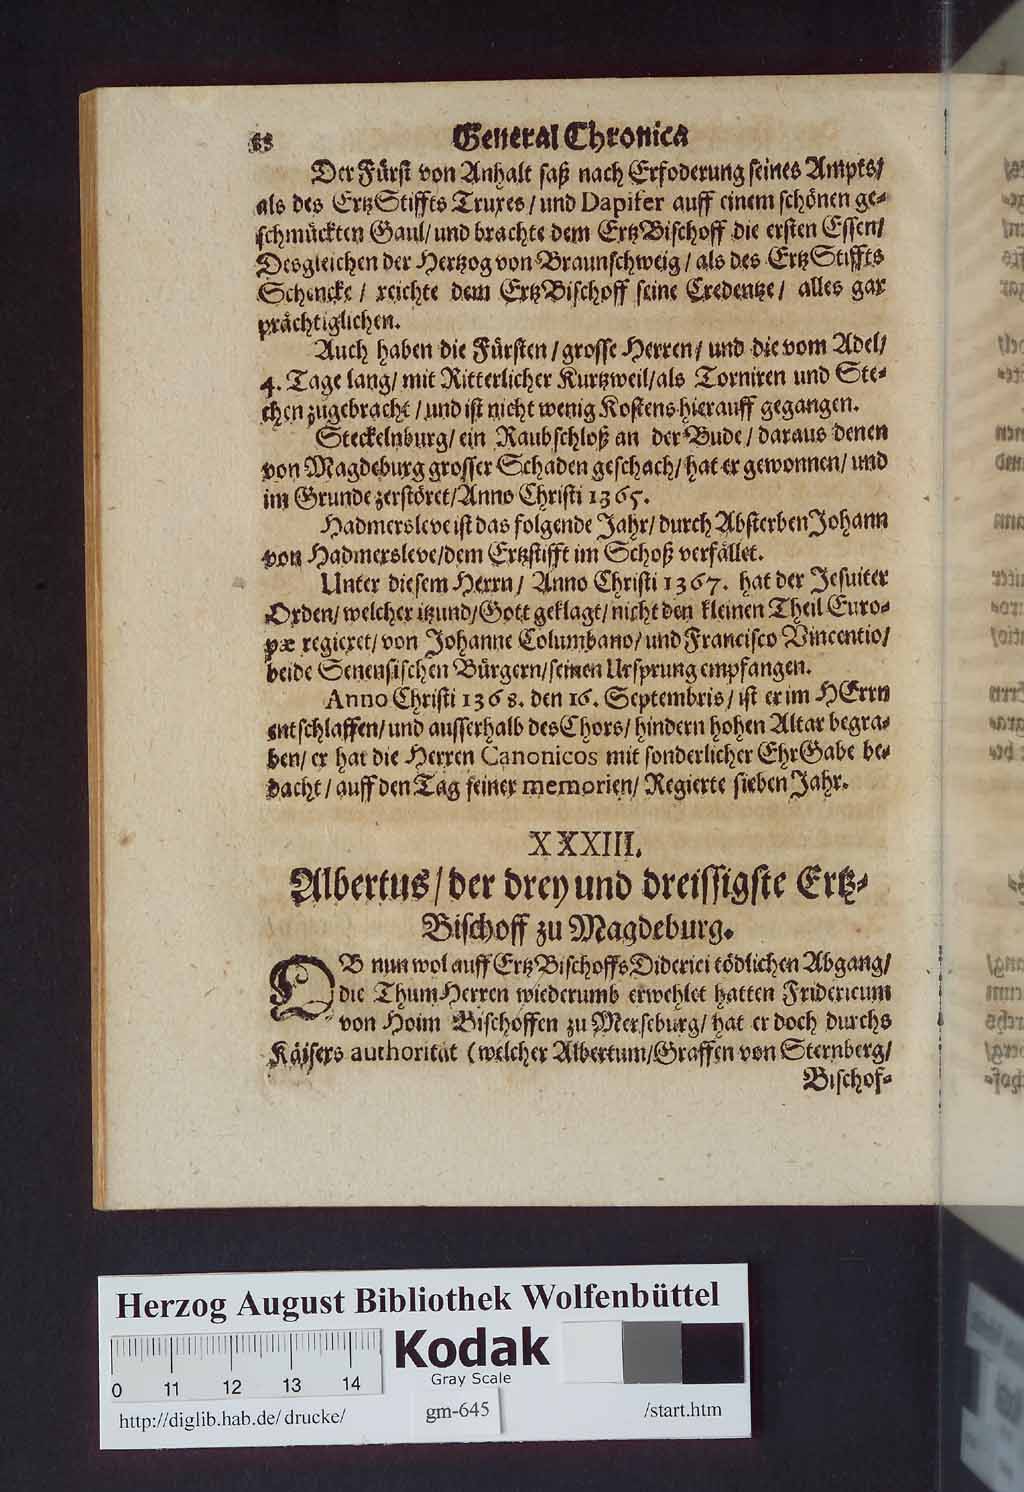 General Chronica
Der Fürst von Anhalt saß nach Erfoderung seines Ampts/
als des ErtzStiffts Truxes/ und Dapifer auff einem schönen ge-
schmückten Gaul/ und brachte dem ErtzBischoff die ersten Essen/
Desgleichen der Hertzog von Braunschweig/ als des ErtzStiffts
Schencke/ reichte dem ErtzBischoff seine Credentze/ alles gar
prächtiglichen.
Auch haben die Fürsten/ grosse Herren/ und die vom Adel/
4. Tage lang/ mit Ritterlicher Kurtzweil/ als Torniren und Ste-
chen zugebracht/ und ist nicht wenig Kostens hierauff gegangen.
Steckelnburg/ ein Raubschloß an der Bude/ daraus denen
von Magdeburg grosser Schaden geschach/ hat er gewonnen/ und
im Grunde zerstöret/ Anno Christi 1365.
Hadmersleve ist das folgende Jahr/ durch Absterben Johann
von Hadmersleve/ dem Ertzstifft im Schoß verfället.
Unter diesem Herrn/ Anno Christi 1367. hat der Jesuiter
Orden/ welcher itzund/ Gott geklagt/ nicht den kleinen Theil Euro-
pæ regieret/ von Johanne Columbano/ und Francisco Vincentio/
beide Senensischen Bürgern/ seinen Ursprung empfangen.
Anno Christi 1368. den 16. Septembris/ ist er im HErrn
entschlaffen/ und ausserhalb des Chors/ hindern hohen Altar begra-
ben/ er hat die Herren Canonicos mit sonderlicher EhrGabe be-
dacht/ auff den Tag seiner memorien/ Regierte sieben Jahr.
XXXIII.
Albertus/ der drey und dreissigste Ertz-
Bischoff zu Magdeburg.
OB nun wol auff ErtzBischoffs Diderici tödlichen Abgang/
die ThumHerren wiederumb erwehlet hatten Fridericum
von Hoim Bischoffen zu Merseburg/ hat er doch durchs
Käisers authoritat (welcher Albertum/ Graffen von Sternberg/
Bischof-
Herzog August Bibliothek Wolfenbüttel
Kodak
Gray Scale
0 11 12 13 14
http://diglib.hab.de/drucke/ gm-645 /start.htm